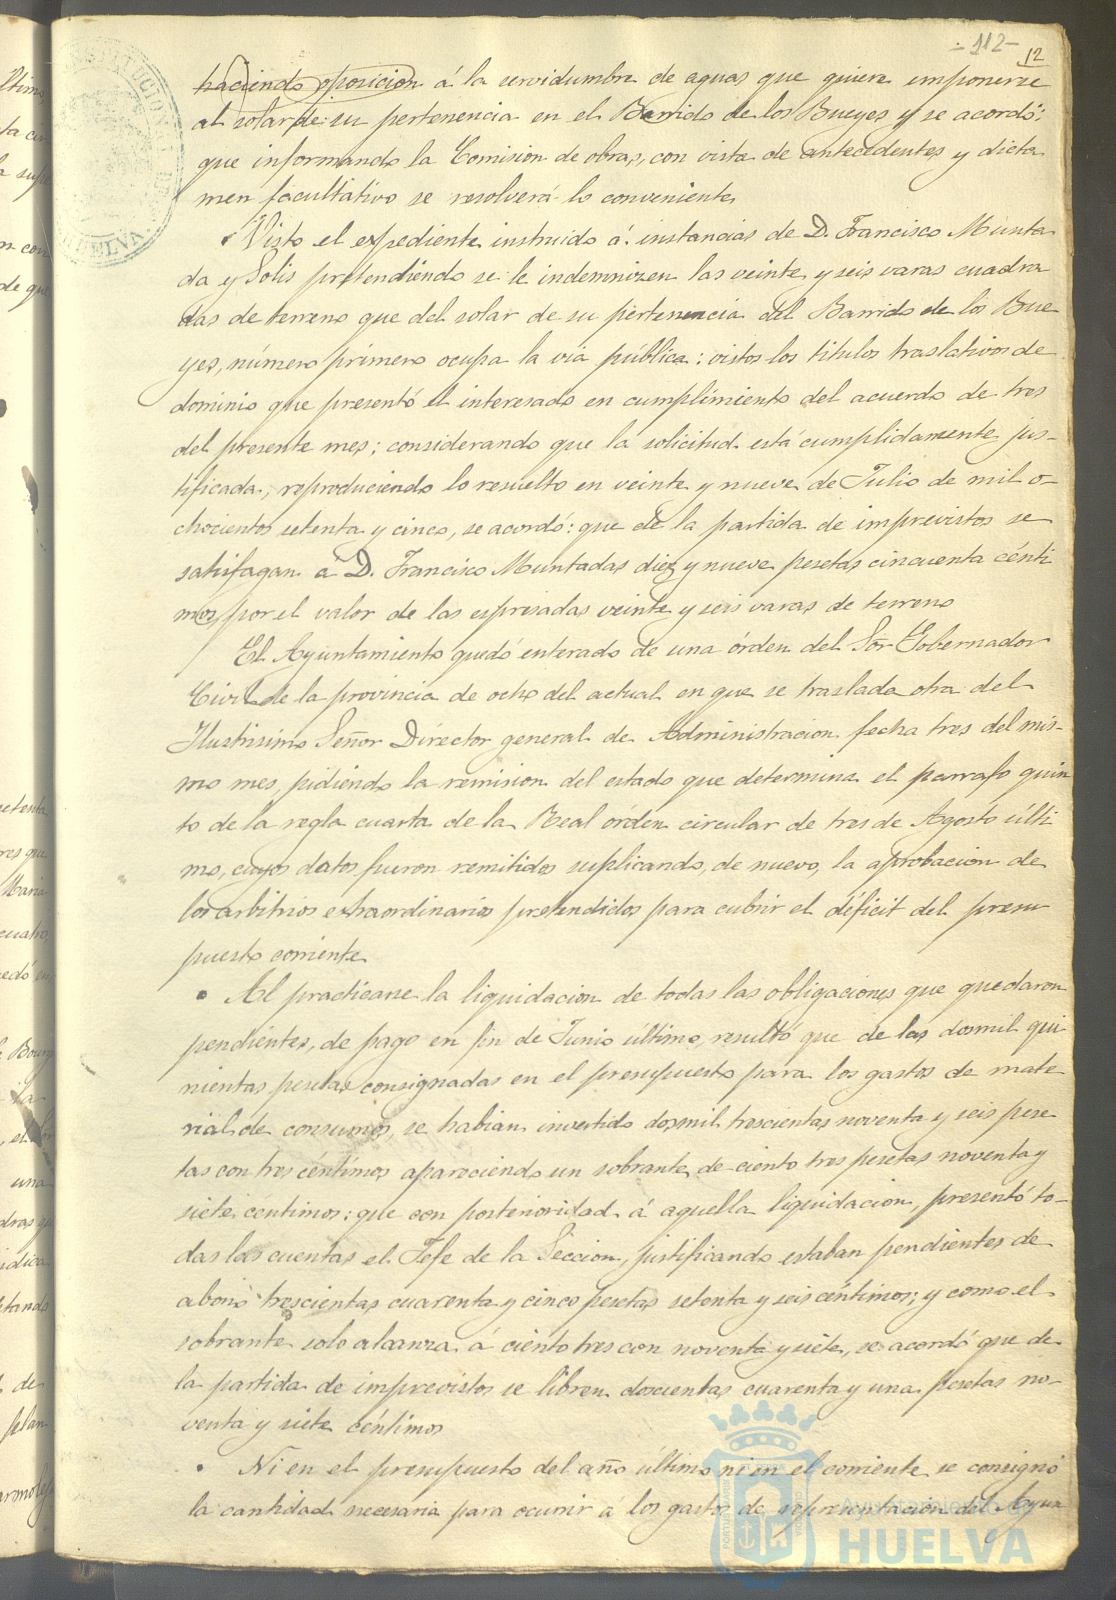 -112-
12
haciendo oposicion á la servidumbre de aguas que quiere imponerse
al solar de su pertenencia en el Barrido de los Bueyes y se acordó:
que informando la Comision de obras, con vista de antecedentes y dicta
men facultativo se resolverá lo conveniente
Visto el expediente instruido á instancias de D. Francisco Munta
da y Solis pretendiendo se le indemnizen las veinte y seis varas cuadra
das de terreno que del solar de su pertenencia del Barrido de los Bue
yes, número primero ocupa la via pública: vistos los titulos traslativos de
dominio que presentó el interesado en cumplimiento del acuerdo de tres
del presente mes; considerando que la solicitud está cumplidamente jus-
tificada, reproduciendo lo resuelto en veinte y nueve de Julio de mil o-
chocientos setenta y cinco, se acordó: que de la partida de imprevistos se
satisfagan á D. Francisco Muntadas diez y nueve pesetas cincuenta cénti
mos por el valor de las espresadas veinte y seis varas de terreno
El Ayuntamiento quedó enterado de una órden del Sor Gobernador
Civil de la provincia de ocho del actual en que se traslada otra del
Ilustrisimo Señor Director general de Administracion fecha tres del mis-
mo mes, pidiendo la remision del estado que determina el parrafo quin
to de la regla cuarta de la Real órden circular de tres de Agosto últi
mo, cuyos datos fueron remitidos suplicando, de nuevo, la aprobacion de
los arbitrios extraordinarios pretendidos para cubrir el déficit del presu
puesto corriente
Al practicarse la liquidacion de todas las obligaciones que quedaron
pendientes, de pago en fin de Junio último, resultó que de las dosmil qui
nientas pesetas consignadas en el presupuesto para los gastos de mate-
rial de consumos, se habian invertido dosmil trescientas noventa y seis pese
tas con tres céntimos apareciendo un sobrante de ciento tres pesetas noventa y
siete céntimos: que con posterioridad á aquella liquidacion, presentó to-
das las cuentas el Jefe de la Seccion, justificando estaban pendientes de
abono trescientas cuarenta y cinco pesetas setenta y seis céntimos; y como el
sobrante solo alcanza á ciento tres con noventa y siete, se acordó que de
la partida de imprevistos se libren doscientas cuarenta y una pesetas no-
venta y siete céntimos
Ni en el presupuesto del año último ni en el corriente se consignó
la cantidad necesaria para ocurrir á los gastos de representacion del Ayun
Ayuntamiento de
HUELVA